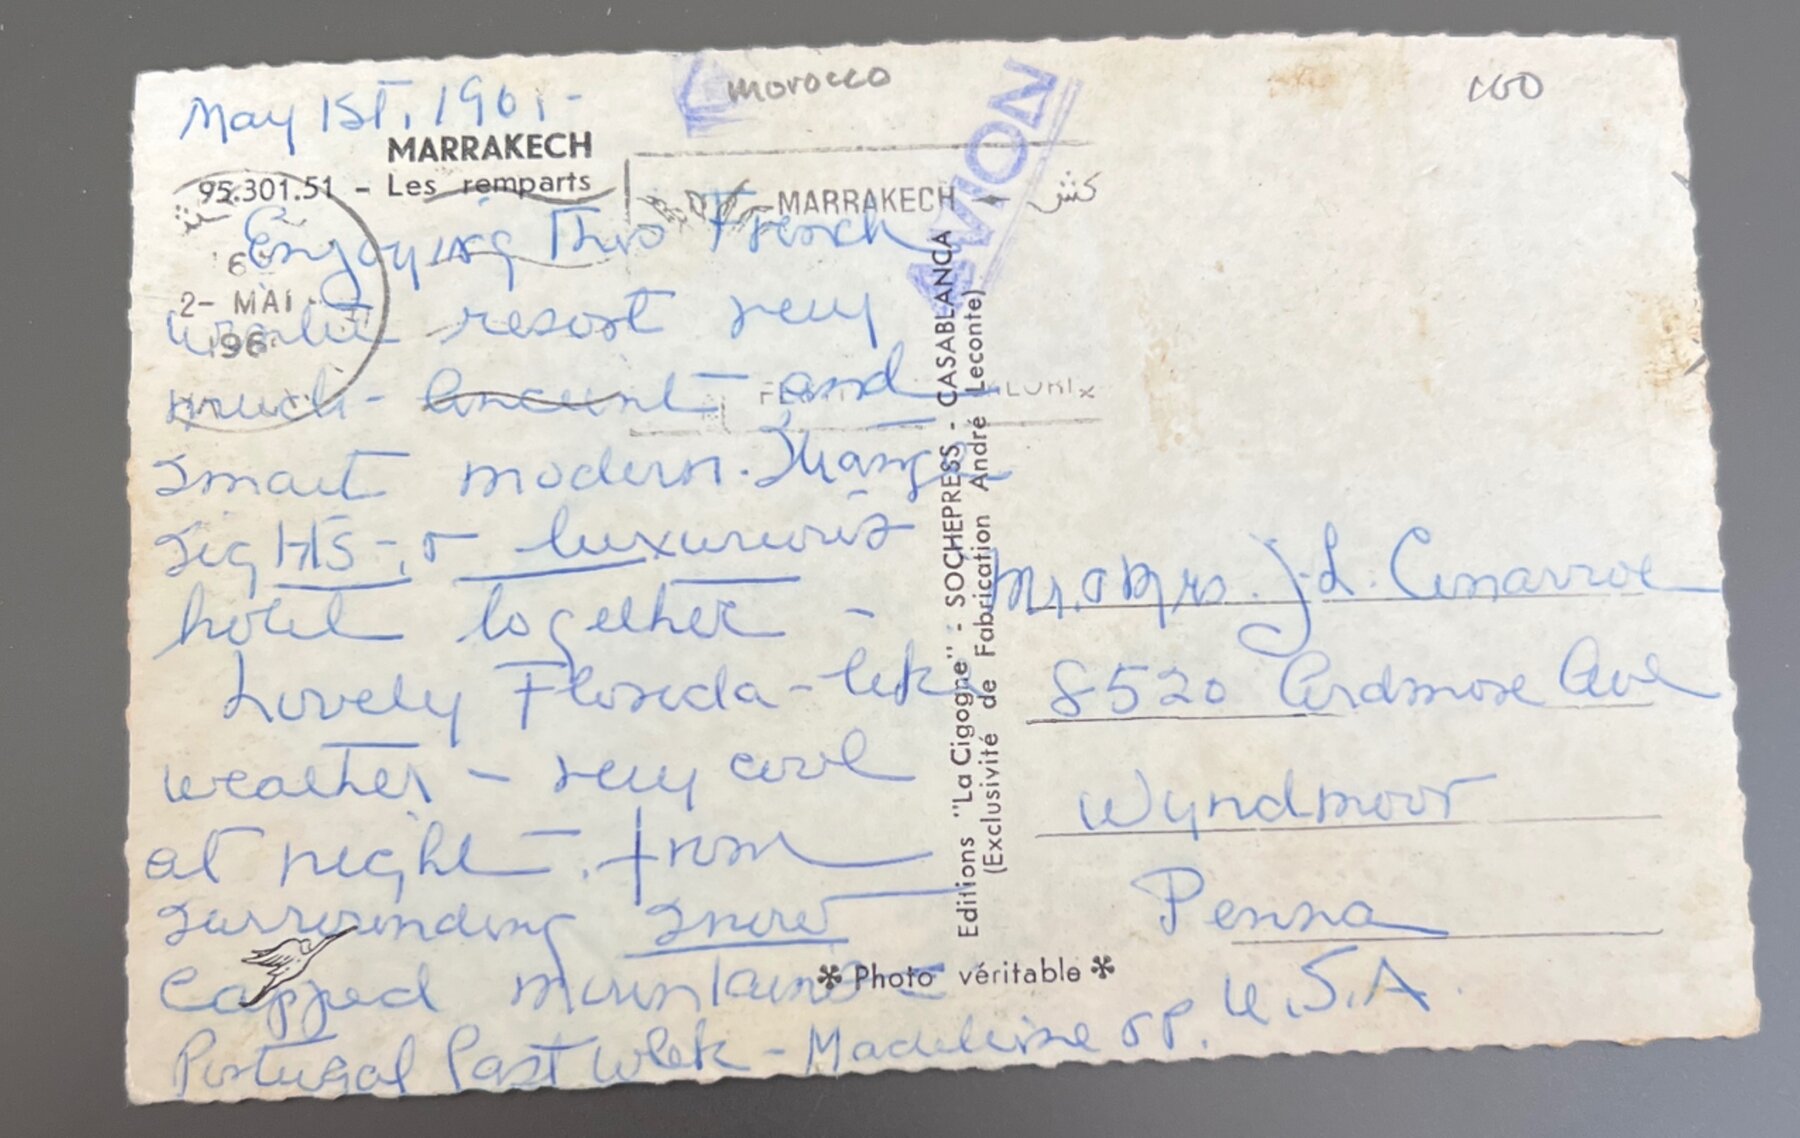 May 1ST, 1961 -
MARRAKECH
95.301.51 - Les remparts
Enjoying This French
winter resort very
much - Ancient and
smart modern. Strange
sigHTS - & luxurious
hotel together -
Lovely Florida - like
weather - very cool
at night - from
surrounding snow
capped mountains -
Portugal Past Week - Madeleine & P.
morocco
AVION
MARRAKECH - كش
2 - MAI
196
Editions "La Cigogne" - SOCHEPRESS - CASABLANCA
(Exclusivité de Fabrication André Leconte)
* Photo véritable *
Mr. & Mrs. J. L.
8520 Ardmore Ave
Wyndmoor
Penna
U.S.A.